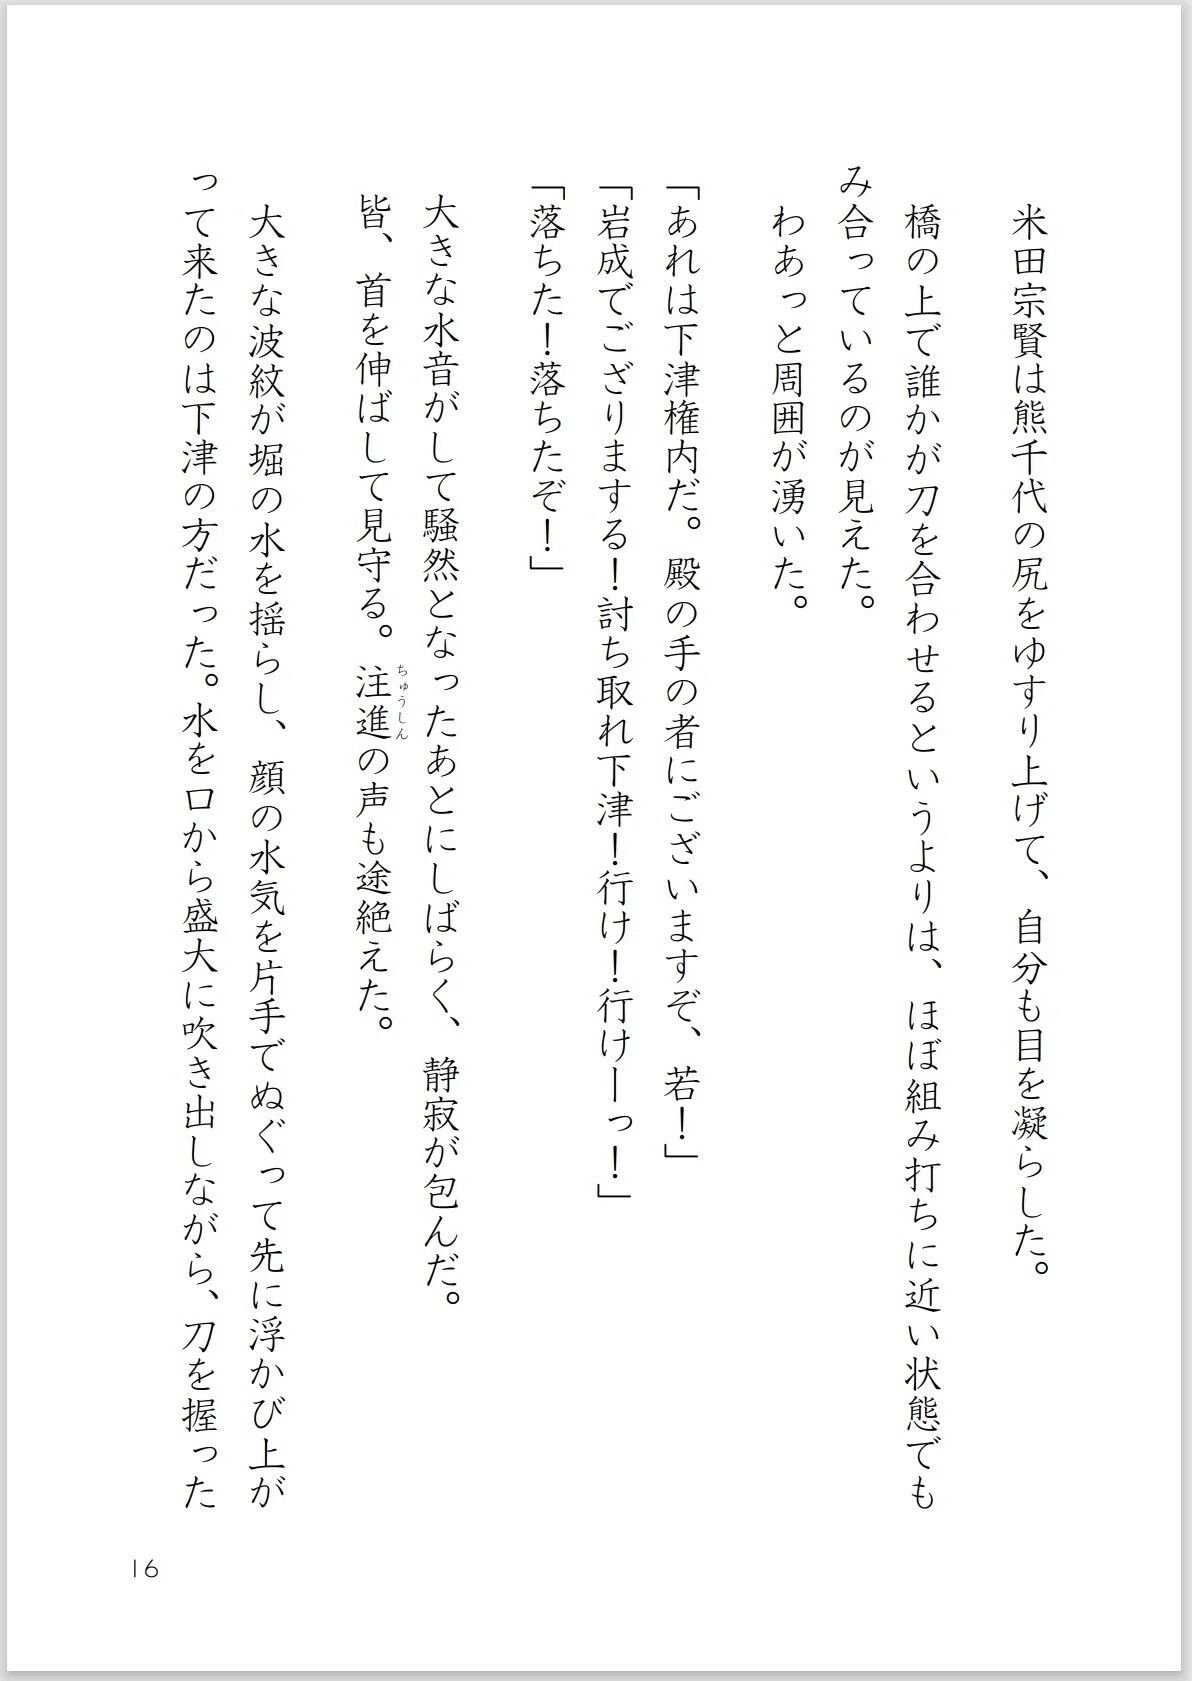 米田宗賢は熊千代の尻をゆすり上げて、自分も目を凝らした。
橋の上で誰かが刀を合わせるというよりは、ほぼ組み打ちに近い状態でも
み合っているのが見えた。
わあっと周囲が湧いた。
「あれは下津権内だ。殿の手の者にございますぞ、若！」
「岩成でござりまする！討ち取れ下津！行け！行けーっ！」
「落ちた！落ちたぞ！」
大きな水音がして騒然となったあとにしばらく、静寂が包んだ。
皆、首を伸ばして見守る。注進の声も途絶えた。
ちゅうしん
大きな波紋が堀の水を揺らし、顔の水気を片手でぬぐって先に浮かび上が
って来たのは下津の方だった。水を口から盛大に吹き出しながら、刀を握った
16